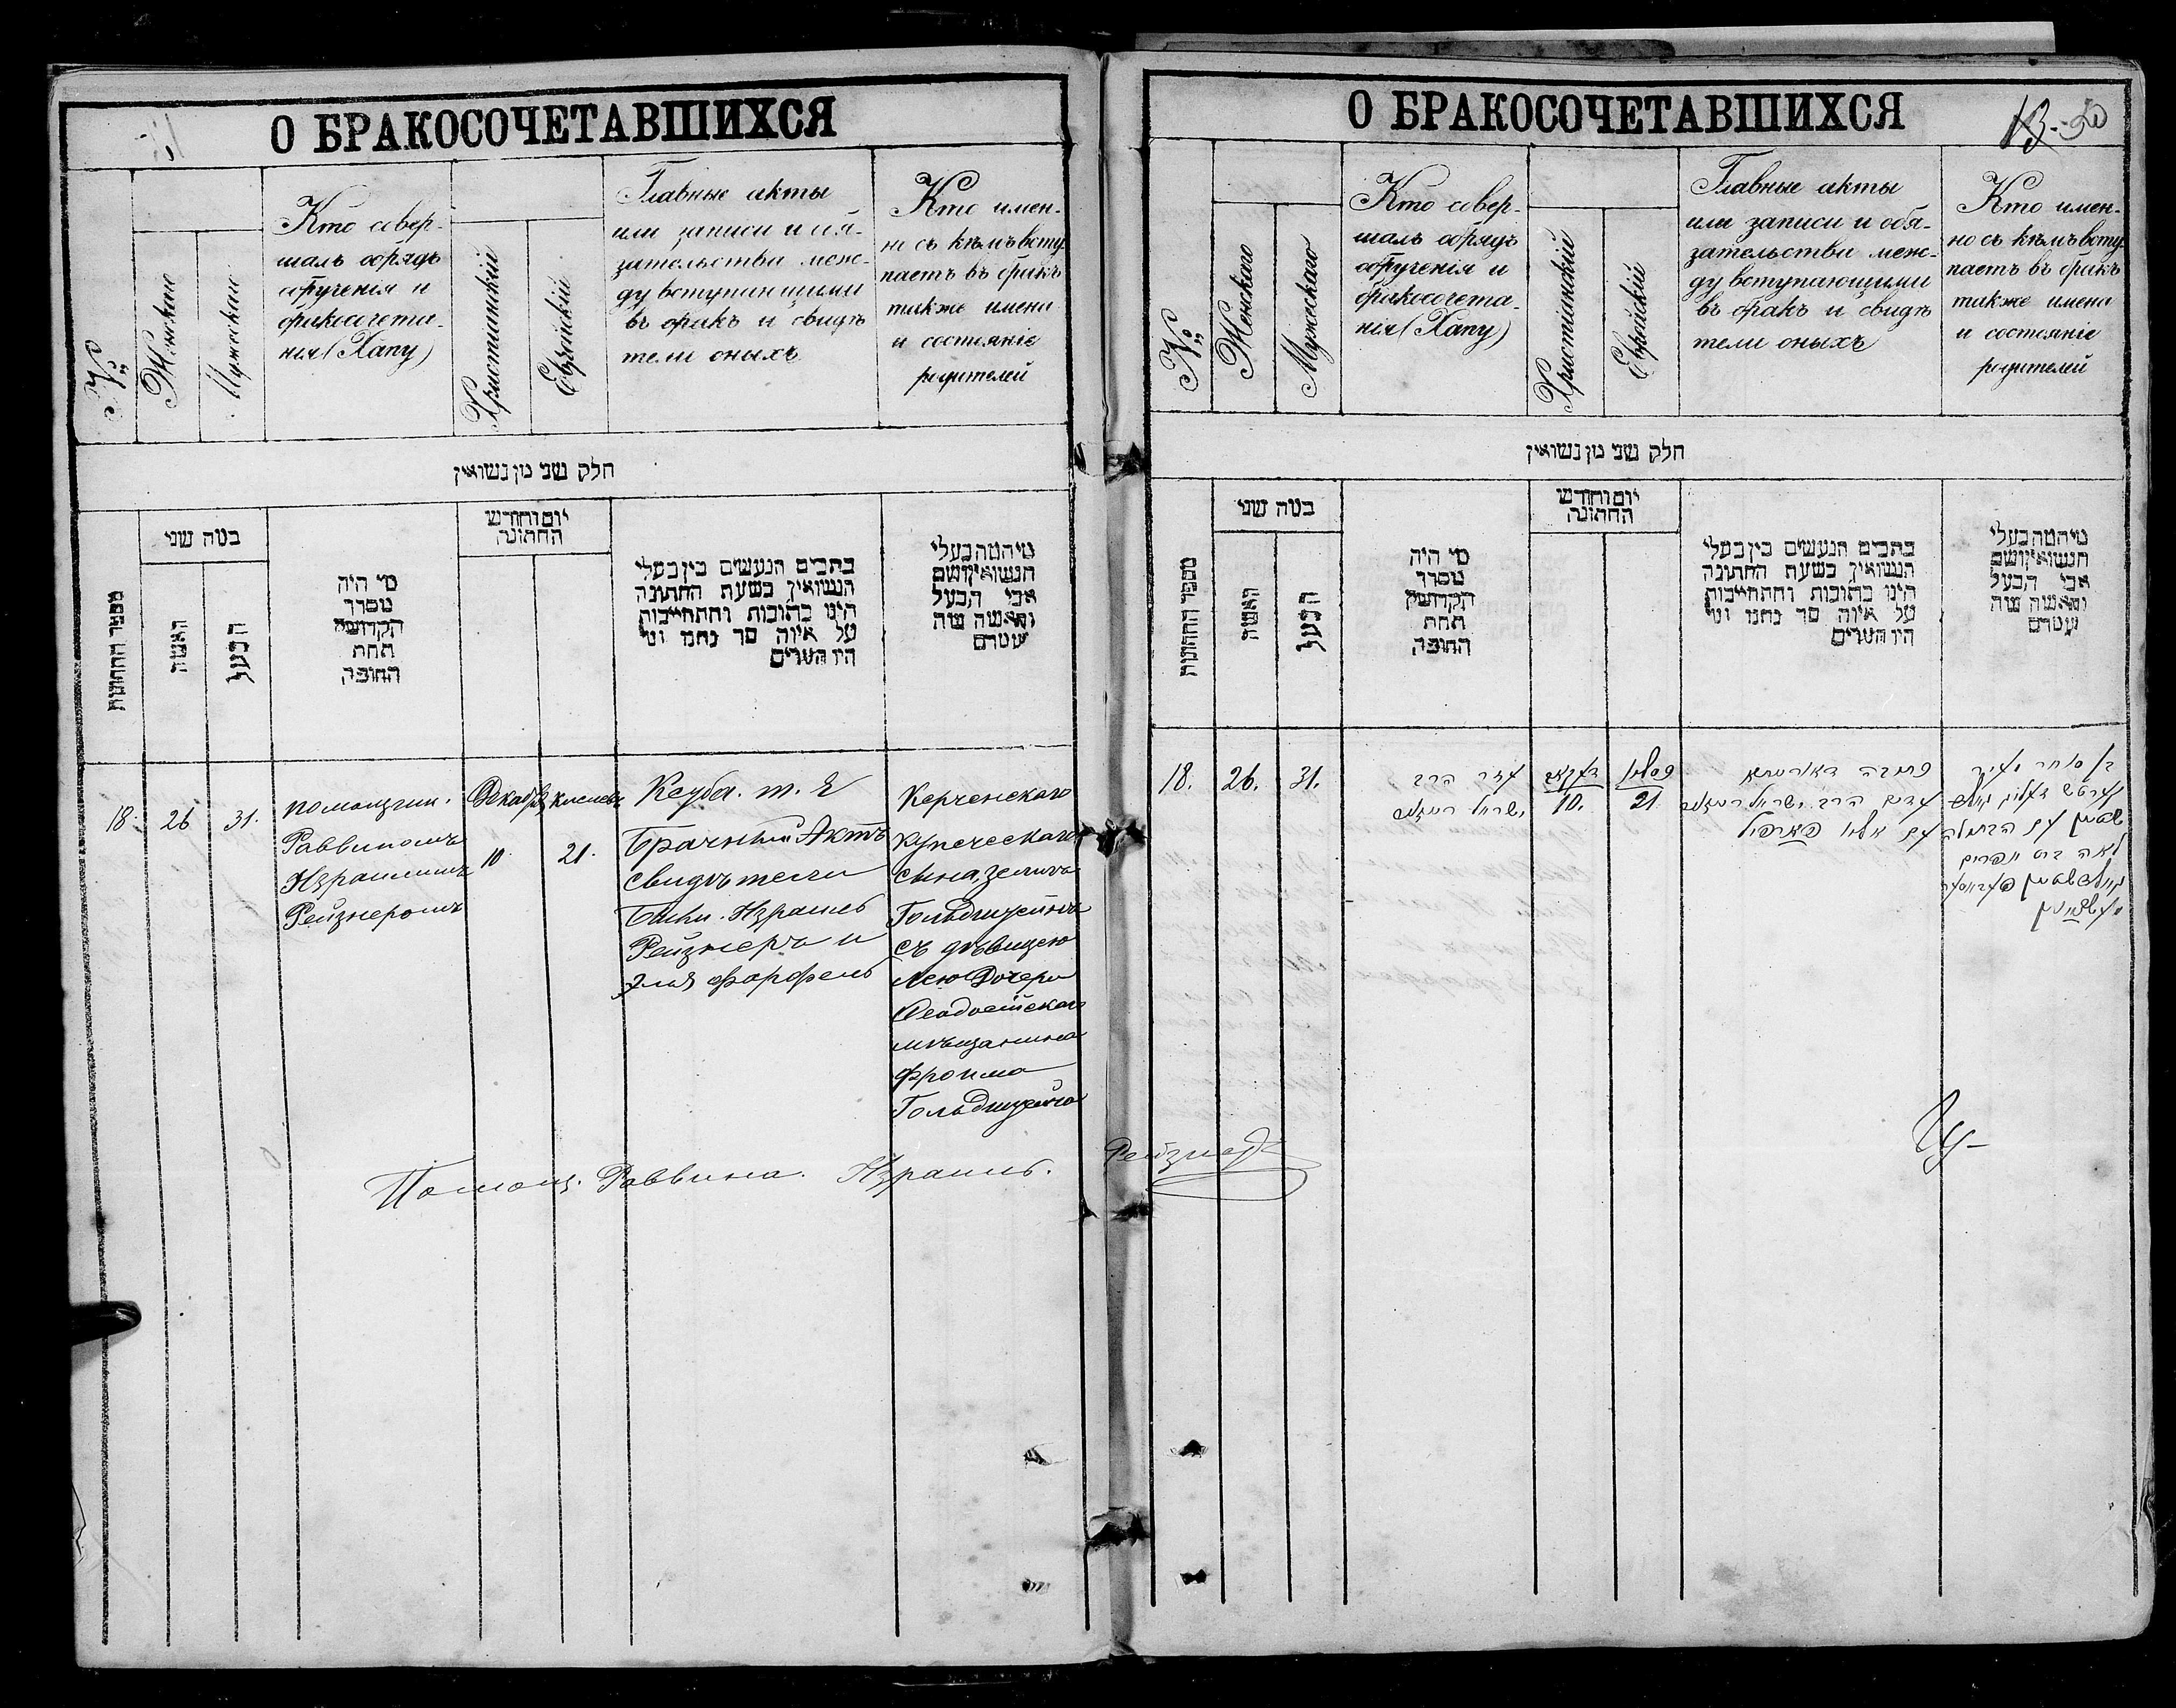 О БРАКОСОЧЕТАВШИХСЯ
№
Женскаго
Мужескаго
Кто совер-
шалъ обрядъ
обрученія и
бракосочета-
нія (Хапу)
Христіанскій
Еврейскій
Главные акты
или записи и обя-
зательства меж-
ду вступающими
въ бракъ и свидѣ
тели оныхъ
Кто имен-
но съ кѣмъ всту
паетъ въ бракъ
также имена
и состояніе
родителей
חלק שני מן נשואין
מספר החתונות
במה שני
האשה
הבעל
מי היה
מסדר
הקדושין
תחת
החופה
יום וחודש
החתונה
כתבים הנעשים בין בעלי
הנשואין בשעת החתונה
היינו כתובות והתחייבות
על איזה סך נתנו ומי
היו העדים
מי המה בעלי
הנשואין ושם
אבי הבעל
והאשה מה
שמם
18.
26
31.
помощник.
Раввиномъ
Израилимъ
Рейзнеромъ
Декабрь
10.
кислевъ
21.
Кеуба. т. е
Брачный Актъ
свидѣтели
были. Израиль
Рейзнеръ и
Эля Фарфель
Керченскаго
купеческаго
сына, Зелига
Гольдштейнъ
съ дѣвицею
Лею Дочери
Феодосійскаго
мѣщанина
Фроима
Гольдштейна
Помощ. Раввина. Израиль. Рейзнеръ
О БРАКОСОЧЕТАВШИХСЯ
№
Женскаго
Мужескаго
Кто совер-
шалъ обрядъ
обрученія и
бракосочета-
нія (Хапу)
Христіанскій
Еврейскій
Главные акты
или записи и обя-
зательства меж-
ду вступающими
въ бракъ и свидѣ
тели оныхъ
Кто имен-
но съ кѣмъ всту
паетъ въ бракъ
также имена
и состояніе
родителей
חלק שני מן נשואין
מספר החתונות
במה שני
האשה
הבעל
מי היה
מסדר
הקדושין
תחת
החופה
יום וחודש
החתונה
כתבים הנעשים בין בעלי
הנשואין בשעת החתונה
היינו כתובות והתחייבות
על איזה סך נתנו ומי
היו העדים
מי המה בעלי
הנשואין ושם
אבי הבעל
והאשה מה
שמם
18.
26.
31.
עזר הרב
ישראל רייזנער
10.
כסלו
21
כתובה דאורייתא
עדים הרב ישראל רייזנער
עם אליו פארפיל
בן סוחר מעיר
קערטש זעליג גולד
שטיין עם הבתולה
לאה בת אפרים
גולדשטיין